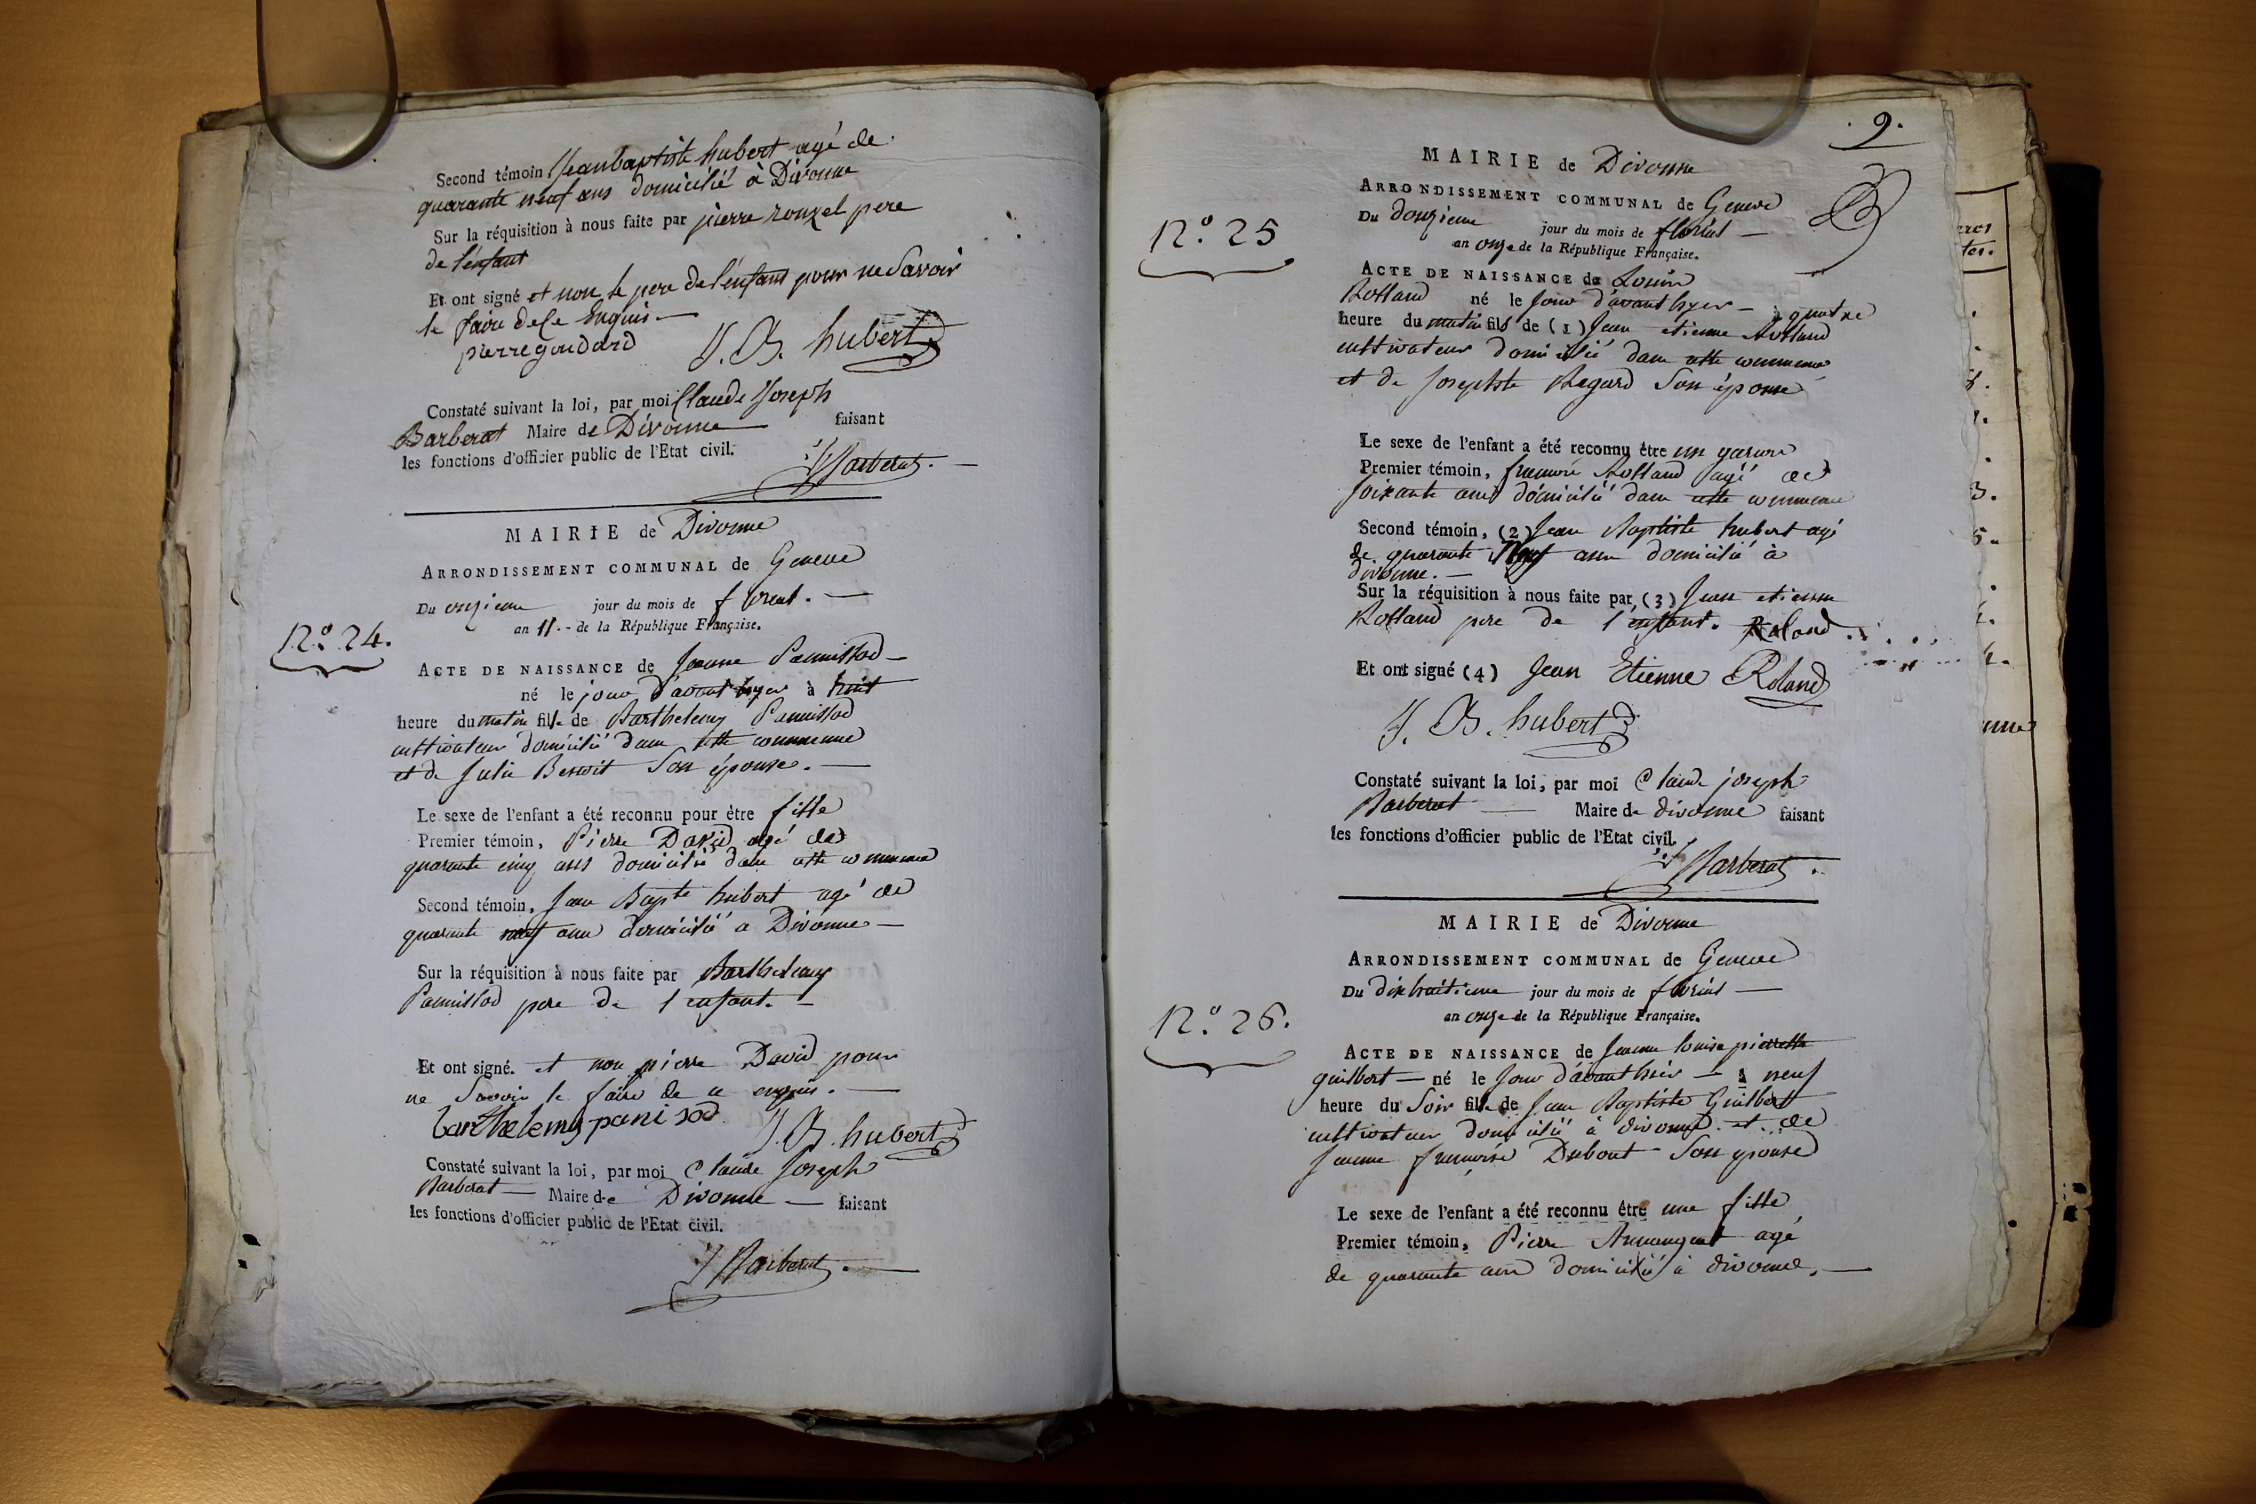 Second témoin Jean baptiste hubert agé de
quarante neuf ans domicilié à Divonne
Sur la réquisition à nous faite par pierre rouzel pere
de l'enfant
Et ont signé et non le pere de l'enfant pour ne Savoir
le faire de ce Enquis
pierre goudard J. B. hubert
Constaté suivant la loi, par moi Claude Joseph
Barberat Maire de Divonne faisant
les fonctions d'officier public de l'Etat civil.
Barberat.
MAIRIE de Divonne
ARRONDISSEMENT COMMUNAL de Geneve
Du onzieme jour du mois de floreal.
an 11 de la République Française.
N.º 24.
ACTE DE NAISSANCE de Jeanne Panissod
né le jour d'avant hyer à huit
heure du matin fille de Barthelemy Panissod
cultivateur domicilié dans cette commune
et de Julie Benoit Son épouse.
Le sexe de l'enfant a été reconnu pour être fille
Premier témoin, Pierre David agé de
quarante cinq ans domicilié dans cette commune
Second témoin, Jean Bapte hubert agé de
quarante neuf ans domicilié a Divonne
Sur la réquisition à nous faite par Barthelemy
Panissod pere de l'enfant.
Et ont signé. et non pierre David pour
ne Savoir le faire de ce enquis.
barthelemy panisod J. B. hubert
Constaté suivant la loi, par moi Claude Joseph
Barberat Maire de Divonne faisant
les fonctions d'officier public de l'Etat civil.
Barberat.
9.
MAIRIE de Divonne
ARRONDISSEMENT COMMUNAL de Geneve
N.º 25
Du douzieme jour du mois de floréal
an onze de la République Française.
ACTE DE NAISSANCE de Louis
Rolland né le jour d'avant hyer à quatre
heure du matin fils de (1) Jean etienne Rolland
cultivateur domicilié dans cette commune
et de Josephte Regard Son épouse
Le sexe de l'enfant a été reconnu être un garson
Premier témoin, francois Rolland agé de
soixante ans domicilié dans cette commune
Second témoin, (2) Jean Baptiste hubert agé
de quarante Neuf ans domicilié à
divonne.
Sur la réquisition à nous faite par (3) Jean etienne
Rolland pere de l'enfant. Roland
Et ont signé (4) Jean Etienne Roland
J. B. hubert
Constaté suivant la loi, par moi Claude joseph
Barberat Maire de divonne faisant
les fonctions d'officier public de l'Etat civil.
Barberat.
MAIRIE de Divonne
ARRONDISSEMENT COMMUNAL de Geneve
Du dixhuitieme jour du mois de floréal
an onze de la République Française.
N.º 26.
ACTE DE NAISSANCE de Jeanne louise pierrette
guilbert né le Jour d'avant hier à neuf
heure du Soir fille de Jean Baptiste Guilbert
cultivateur domicilié à divonne et de
Jeanne francoise Dubout Son epouse
Le sexe de l'enfant a été reconnu être une fille
Premier témoin, Pierre agé
de quarante ans domicilié à divonne.